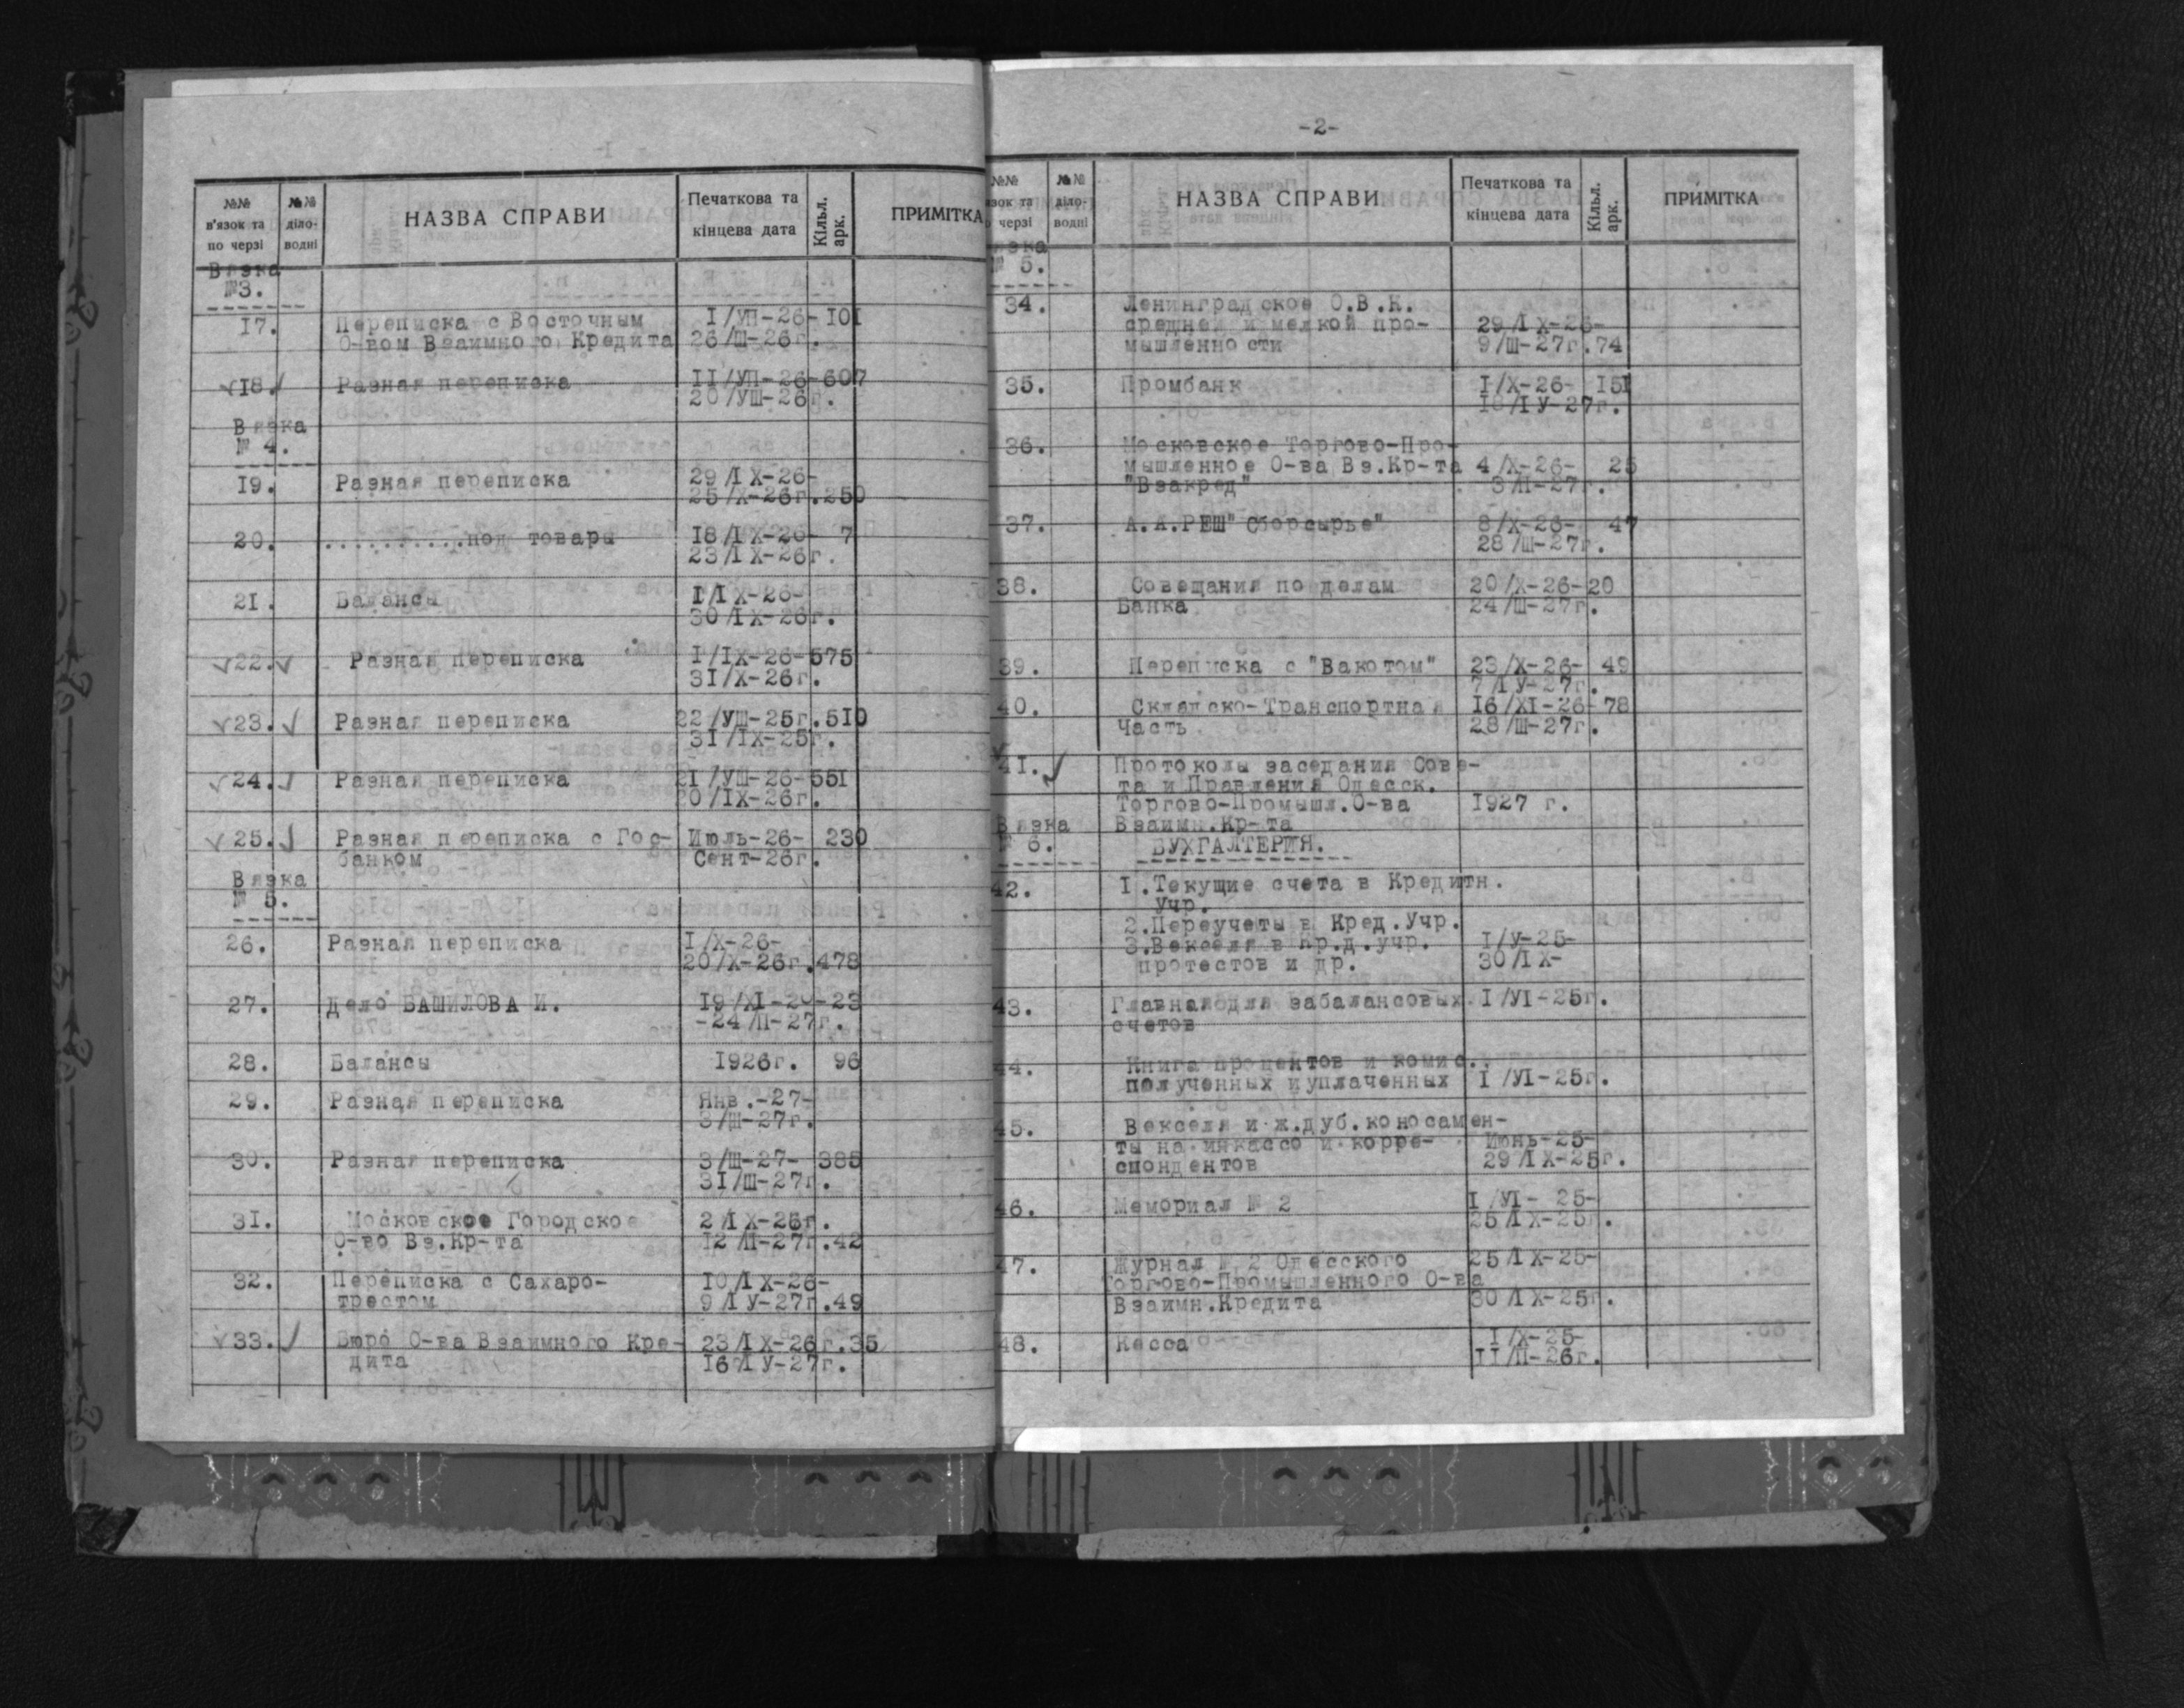 №№
в'язок та
по черзі
№№
діло-
водні
НАЗВА СПРАВИ
Печаткова та
кінцева дата
Кільк.
арк.
ПРИМІТКА
Вязка
№3.
17. Переписка с Восточным I/УП-26- 101
О-вом Взаимного Кредита 26/Ш-26г.
18. Разная переписка II/УП-26- 607
20/УШ-26г.
Вязка
№ 4.
19. Разная переписка 29/IХ-26-
25/Х-26г. 250
20. ...........под товары 18/IХ-26- 7
23/IХ-26г.
21. Балансы I/IХ-26-
30/IХ-26г.
22. Разная переписка I/IХ-26- 575
31/Х-26г.
23. Разная переписка 22/УШ-25г. 510
31/IХ-25г.
24. Разная переписка 21/УШ-26- 551
20/IХ-26г.
25. Разная переписка с Гос- Июль-26- 230
банком Сент-26г.
Вязка
№ 5.
26. Разная переписка I/Х-26-
20/Х-26г. 478
27. Дело БАШИЛОВА И. 19/XI-26- 23
-24/П-27г.
28. Балансы 1926г. 96
29. Разная переписка Янв.-27-
3/Ш-27г.
30. Разная переписка 3/Ш-27- 385
31/Ш-27г.
31. Московское Городское 2/IХ-26г.
О-во Вз.Кр-та 12/П-27г. 42
32. Переписка с Сахаро- 10/IХ-26-
трестом 9/IУ-27г. 49
33. Бюро О-ва Взаимного Кре- 23/IХ-26г. 35
дита 16/IУ-27г.
-2-
№№
язок та
о черзі
№№
діло-
водні
НАЗВА СПРАВИ
Печаткова та
кінцева дата
Кільк.
арк.
ПРИМІТКА
язка
№ 5.
34. Ленинградское О.В.К.
средней и мелкой про- 29/IХ-26-
мышленности 9/Ш-27г. 74
35. Промбанк I/Х-26- 151
18/IУ-27г.
36. Московское Торгово-Про-
мышленное О-ва Вз.Кр-та 4/Х-26- 25
"Взакред" 3/П-27г.
37. А.А.РЕШ "Сборсырье" 8/Х-26- 47
28/Ш-27г.
38. Совещания по делам 20/Х-26- 20
Банка 24/Ш-27г.
39. Переписка с "Вакотом" 23/Х-26- 49
7/IУ-27г.
40. Складско-Транспортная 16/XI-26- 78
Часть 28/Ш-27г.
41. Протоколы заседания Сове-
та и Правления Одесск.
Торгово-Промышл.О-ва 1927 г.
Взаимн.Кр-та
Вязка
№ 6. БУХГАЛТЕРИЯ.
42. I.Текущие счета в Кредитн.
Учр.
2.Переучеты в Кред.Учр.
3.Векселя в Кр.д.учр. I/У-25-
протестов и др. 30/IХ-
43. Главная для забалансовых I/УI-25г.
счетов
44. Книга процентов и комис.
полученных и уплаченных I/УI-25г.
45. Векселя и ж.дуб.коносамен-
ты на инкассо и корре- Июнь-25-
спондентов 29/IХ-25г.
46. Мемориал № 2 I/УI- 25-
25/IХ-25г.
47. Журнал № 2 Одесского 25/IХ-25-
Торгово-Промышленного О-ва
Взаимн.Кредита 30/IХ-25г.
48. Касса I/Х-25-
II/П-26г.